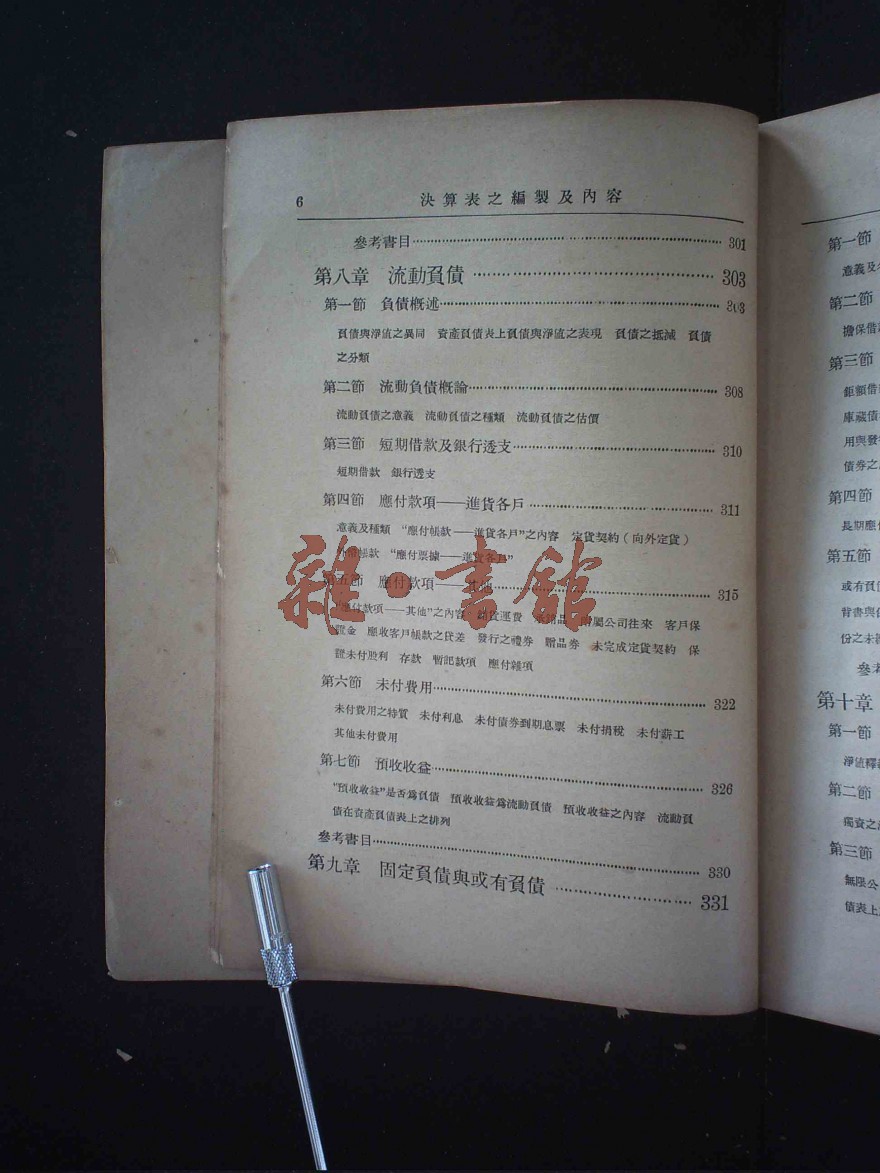 6 決算表之編製及內容
參考書目 301
第八章 流動負債 303
第一節 負債概述 303
負債與淨值之異同 資產負債表上負債與淨值之表現 負債之抵減 負債
之分類
第二節 流動負債概論 308
流動負債之意義 流動負債之種類 流動負債之估價
第三節 短期借款及銀行透支 310
短期借款 銀行透支
第四節 應付款項——進貨各戶 311
意義及種類 “應付帳款——進貨各戶”之內容 定貨契約(向外定貨)
帳款 “應付票據——進貨各戶”
第五節 應付款項——其他 315
“應付款項——其他”之內容 運費 附屬公司往來 客戶保
證金 應收客戶帳款之貸差 發行之禮券 贈品券 未完成定貨契約 保
證未付股利 存款 暫記款項 應付雜項
第六節 未付費用 322
未付費用之特質 未付利息 未付債券到期息票 未付捐稅 未付薪工
其他未付費用
第七節 預收收益 326
“預收收益”是否為負債 預收收益為流動負債 預收收益之內容 流動負
債在資產負債表上之排列
參考書目 330
第九章 固定負債與或有負債 331
雜·書館
第一節
意義及
第二節
擔保借
第三節
鉅額借
庫藏債
用與發
債券之
第四節
長期應
第五節
或有負
背書與
份之未
參
第十章
第一節
淨值釋
第二節
獨資之
第三節
無限公
債表上